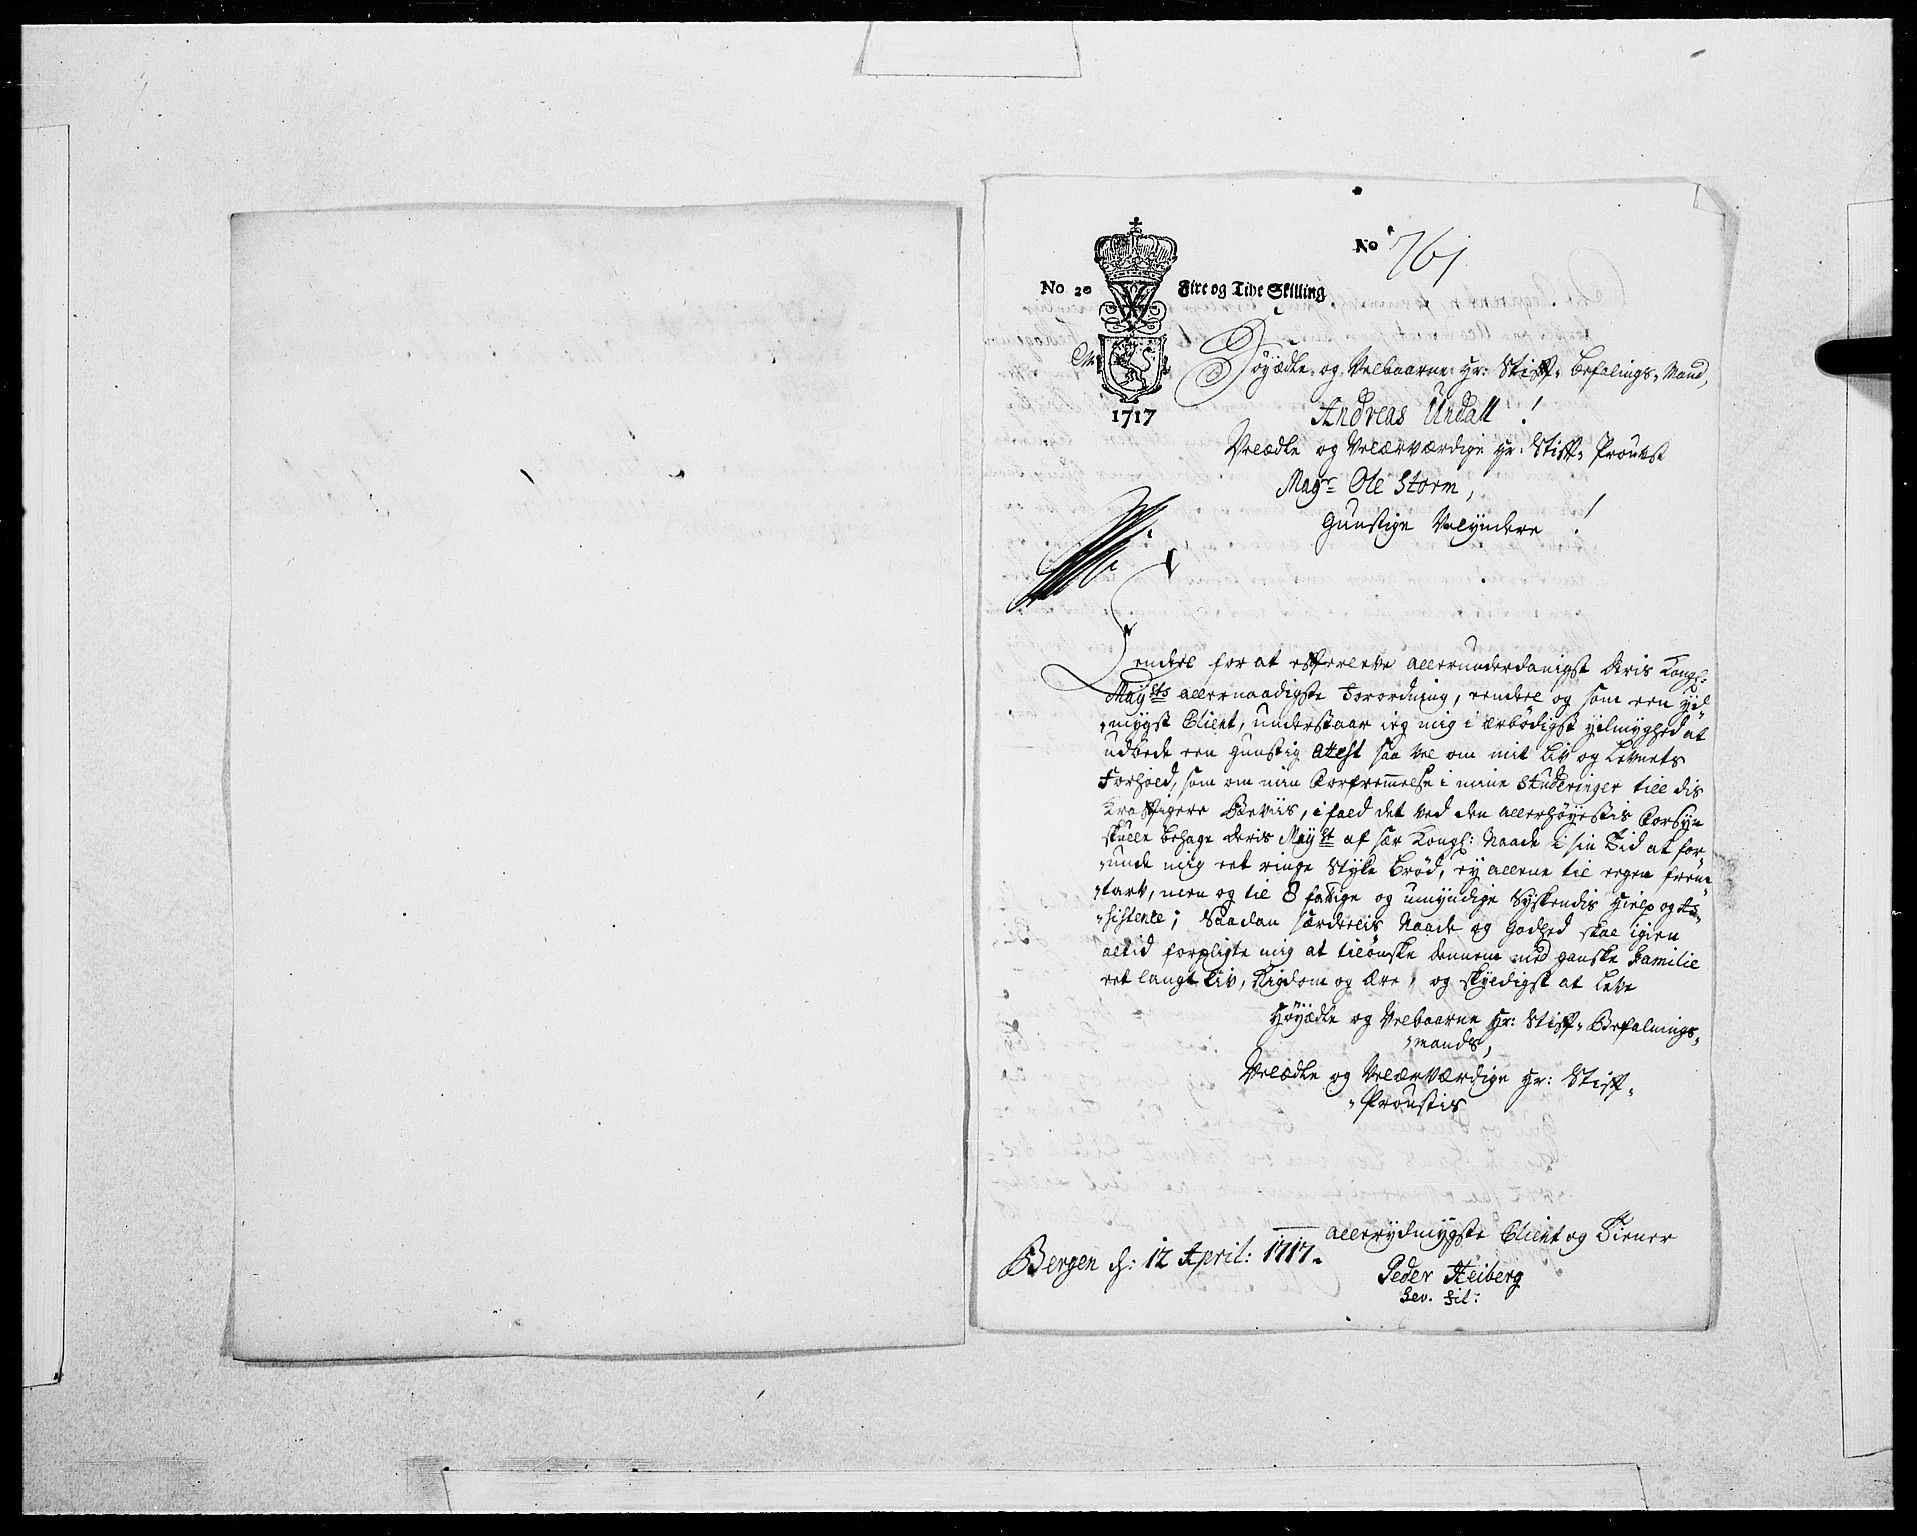 No 761
No 20 Fire og Tive Skilling
1717
Höyædle og Velbaarne Hr: Stift-Befalings-Mand,
Andreas Undall !
Velædle og Velærværdige Hr: Stift-Proubst
Magr Ole Storm,
Gunstige Velyndere !
endeel for at efterleve allerunderdanigst Deris Kongl:
Mayts allernaadigste Forordning, eendeel og som een yd-
-mygst Client, understaar ieg mig i ærbödigst ydmyghed at
udbede een gunstig attest saa vel om mit Liv og Levnets
Forhold, som om min Forfremmelse i mine Studeringer till dis
Kraftigere Beviis, ifald det ved den allerhöyestis Forsyn
skulle behage Deris Mayst af sær Kongl: Naade i sin Tid at for-
-unde mig eet ringe Styke Bröd, ey allene til eegen frem-
-tarv, men og til 8 fattige og umyndige Syskendis Hielp og As-
-sistence; Saadan særdeelis Naade og Godhed skal igien
altid forpligte mig at tilönske dennem med ganske Familie
eet langt Liv, Rigdom og Ære, og skyldigst at Leve
Höyædle og Velbaarne Hr: Stift-Befalnings-
-mands,
Velædle og Velærværdige Hr: Stift-
-Proustis
allerydmygste Client og Tiener
Bergen d: 12 April: 1717.
Peder Heiberg
Sev. Fil: